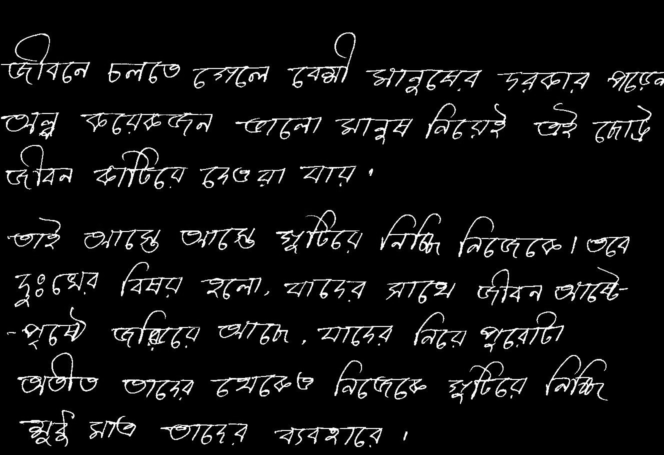 জীবনে চলতে গেলে বেশী মানুষের দরকার পড়েনা
অল্প কয়েকজন ভালো মানুষ নিয়েই এই ছোট্ট
জীবন কাটিয়ে দেওয়া যায়।
তাই আস্তে আস্তে গুটিয়ে নিচ্ছি নিজেকে। তবে
দুঃখের বিষয় হলো, যাদের সাথে জীবন আষ্টে-
-পৃষ্ঠে জরিয়ে আছে, যাদের নিয়ে পুরোটা
অতীত তাদের থেকেও নিজেকে গুটিয়ে নিচ্ছি
শুধু মাত্র তাদের ব্যবহারে।